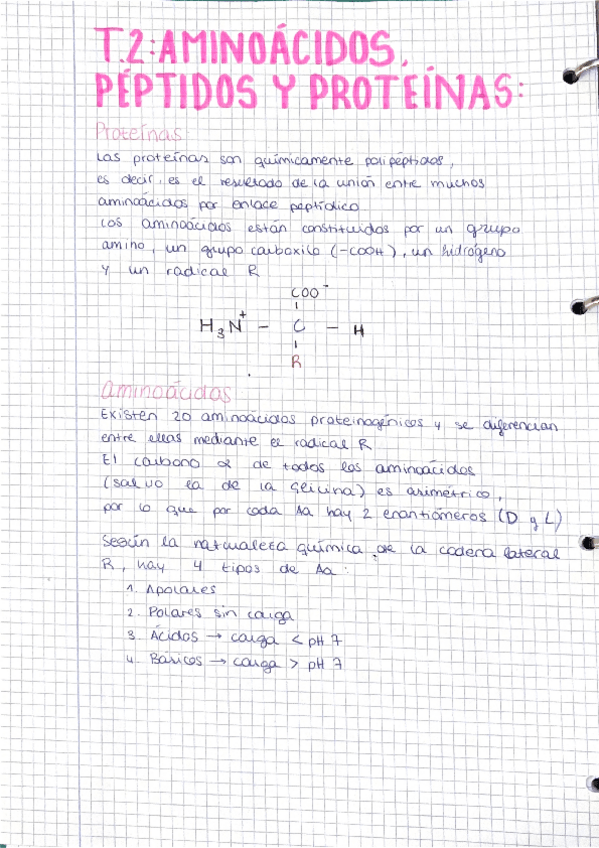 T.2: AMINOÁCIDOS,
PÉPTIDOS Y PROTEÍNAS:
Proteínas:
Las proteínas son químicamente polipéptidos,
es decir, es el resultado de la unión entre muchos
aminoácidos por enlace peptídico
Los aminoácidos están constituidos por un grupo
amino, un grupo carboxilo (-COOH), un hidrógeno
y un radical R
COO⁻
H₃N⁺ - C - H
R
Aminoácidos
Existen 20 aminoácidos proteinogénicos y se diferencian
entre ellas mediante el radical R
El carbono α de todos los aminoácidos
(salvo la de la Glicina) es asimétrico,
por lo que por cada Aa hay 2 enantiómeros (D y L)
Según la naturaleza química de la cadena lateral
R, hay 4 tipos de Aa:
1. Apolares
2. Polares sin carga
3. Ácidos → carga < pH 7
4. Básicos → carga > pH 7